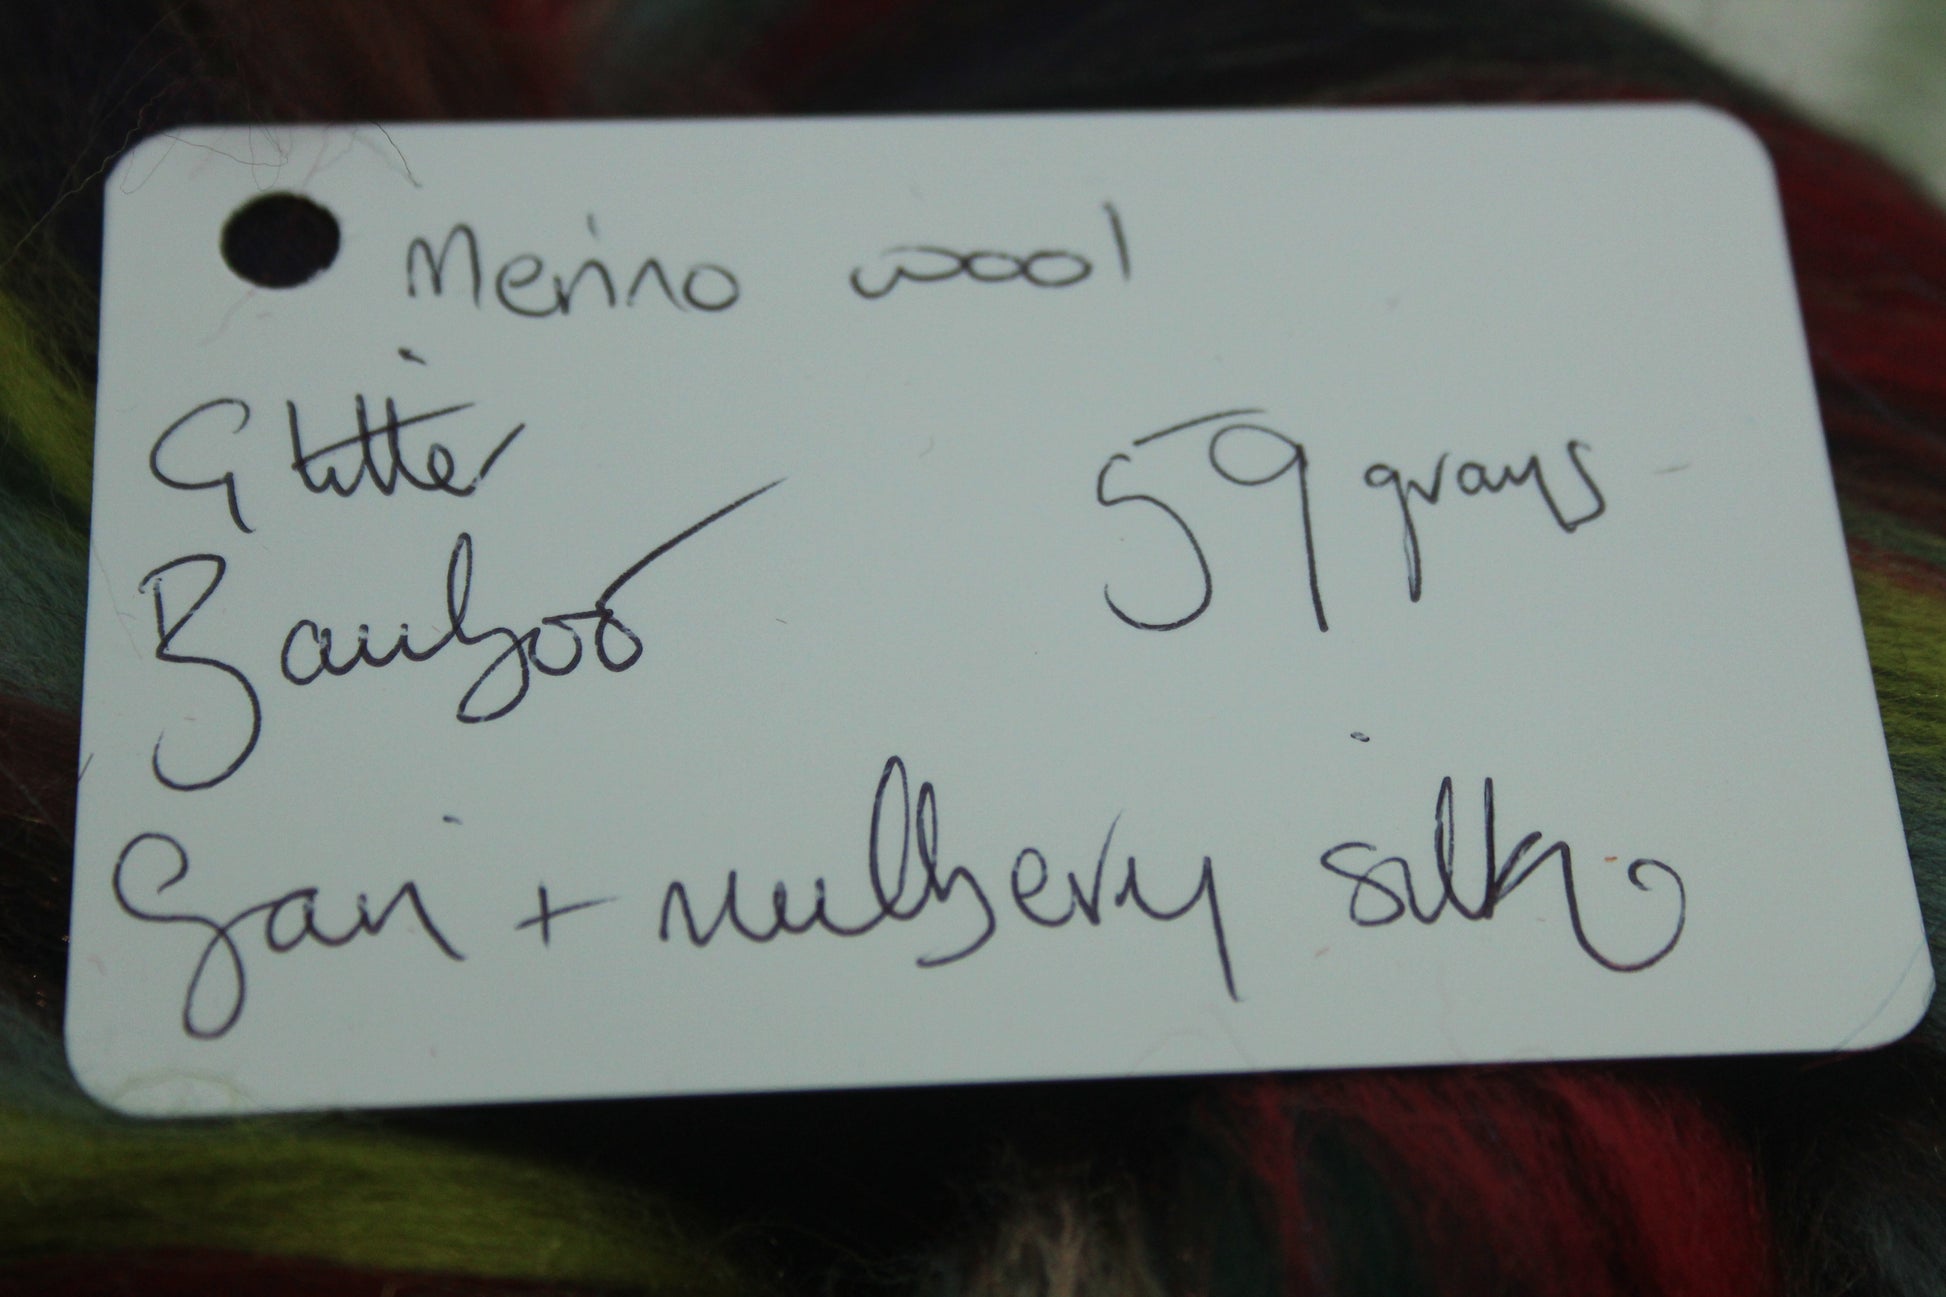 Merino wool
Glitter
59 grams
Bamboo
Sari + mulberry silk